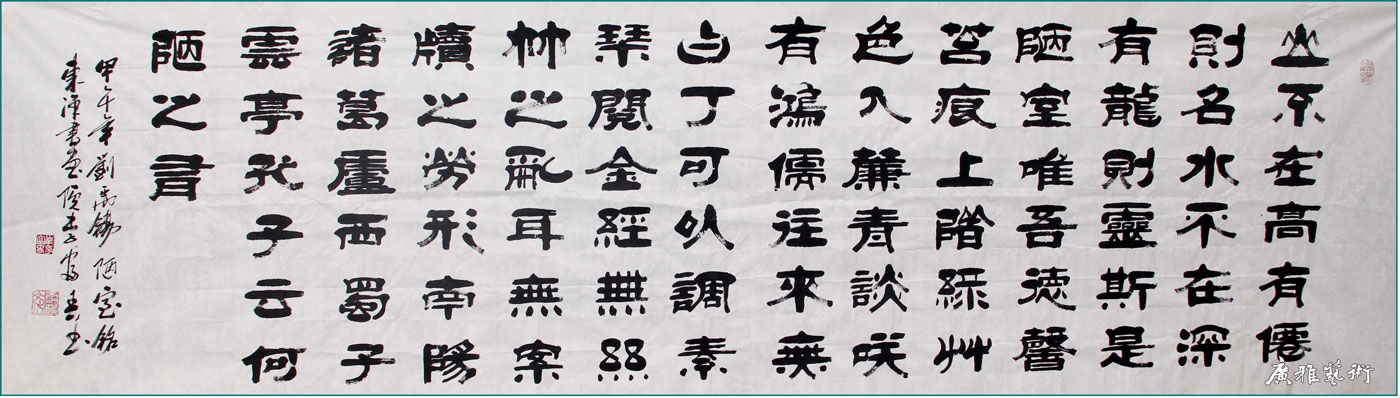 山不在高有僊
則名水不在深
有龍則靈斯是
陋室唯吾德馨
苔痕上階綠艸
色入簾青談咲
有鴻儒往來無
白丁可以調素
琴閱金經無絲
竹之亂耳無案
牘之勞形南陽
諸葛廬西蜀子
雲亭孔子云何
陋之有
甲午年劉禹錫陋室銘
書畫院
廣雅藝術